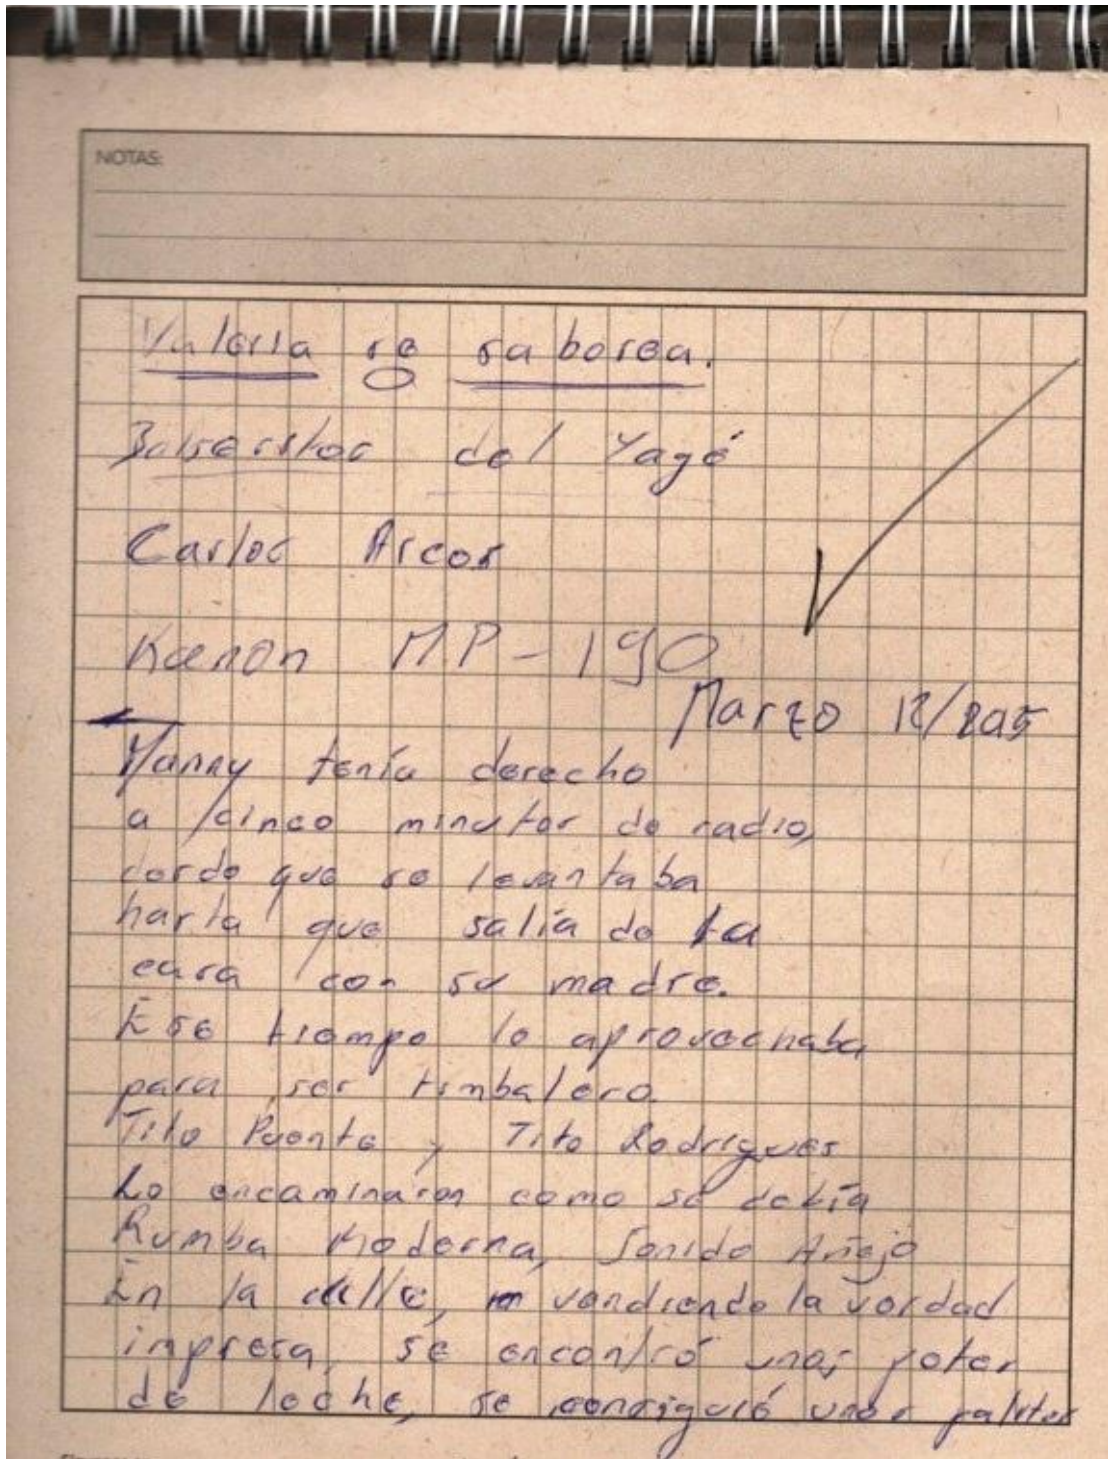 NOTAS:
Valeria se saborea.
del Yagé
Carlos Arcos
Kanon MP-190
Marzo 12/2015
Manny tenía derecho
a cinco minutos de radio,
desde que se levantaba
hasta que salía de la
casa con su madre.
Ese tiempo lo aprovechaba
para ser timbalero.
Tito Puente, Tito Rodrigues
Lo encaminaron como se debía
Rumba Moderna, Sonido Añejo
En la calle, vendiendo la verdad
impresa, se encontró unos potes
de leche, se consiguió unos palitos